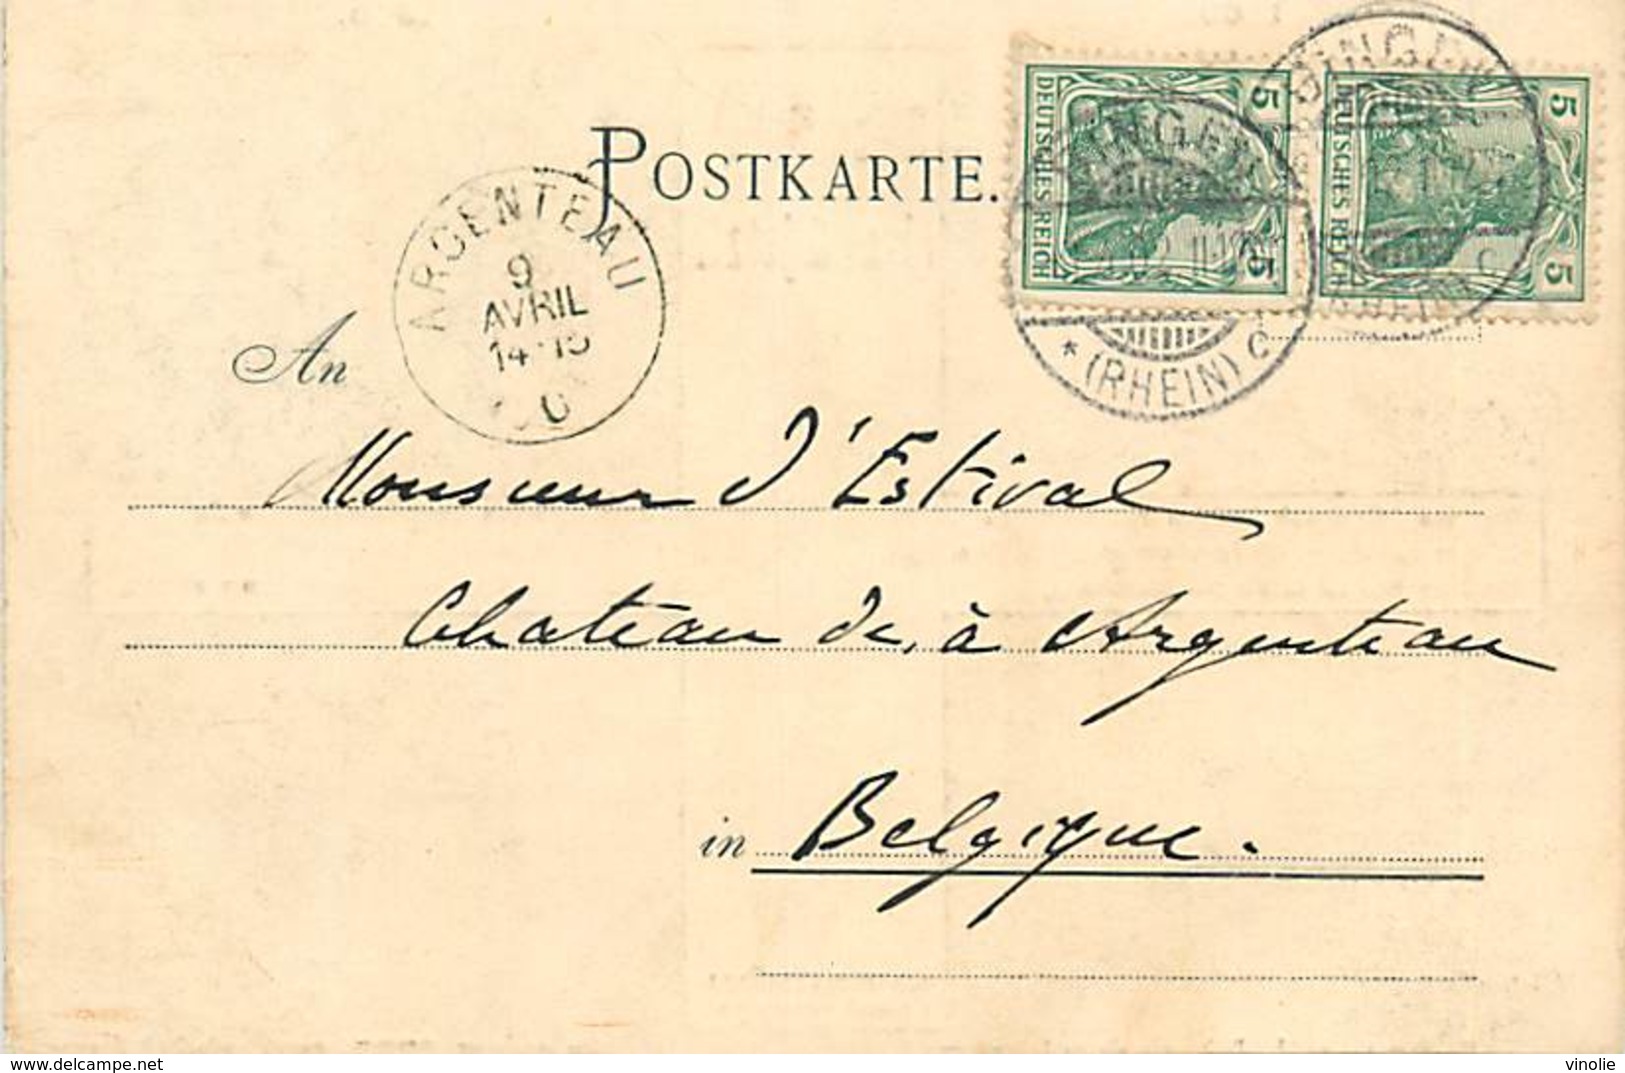 POSTKARTE.
5 DEUTSCHES REICH 5
5 DEUTSCHES REICH 5
BINGEN
* (RHEIN) c
BINGEN
(RHEIN) c
ARGENTEAU
9
AVRIL
14-15
An
Monsieur d'Estival
Chateau de, à Argenteau
in Belgique.
delcampe.net
vinolie